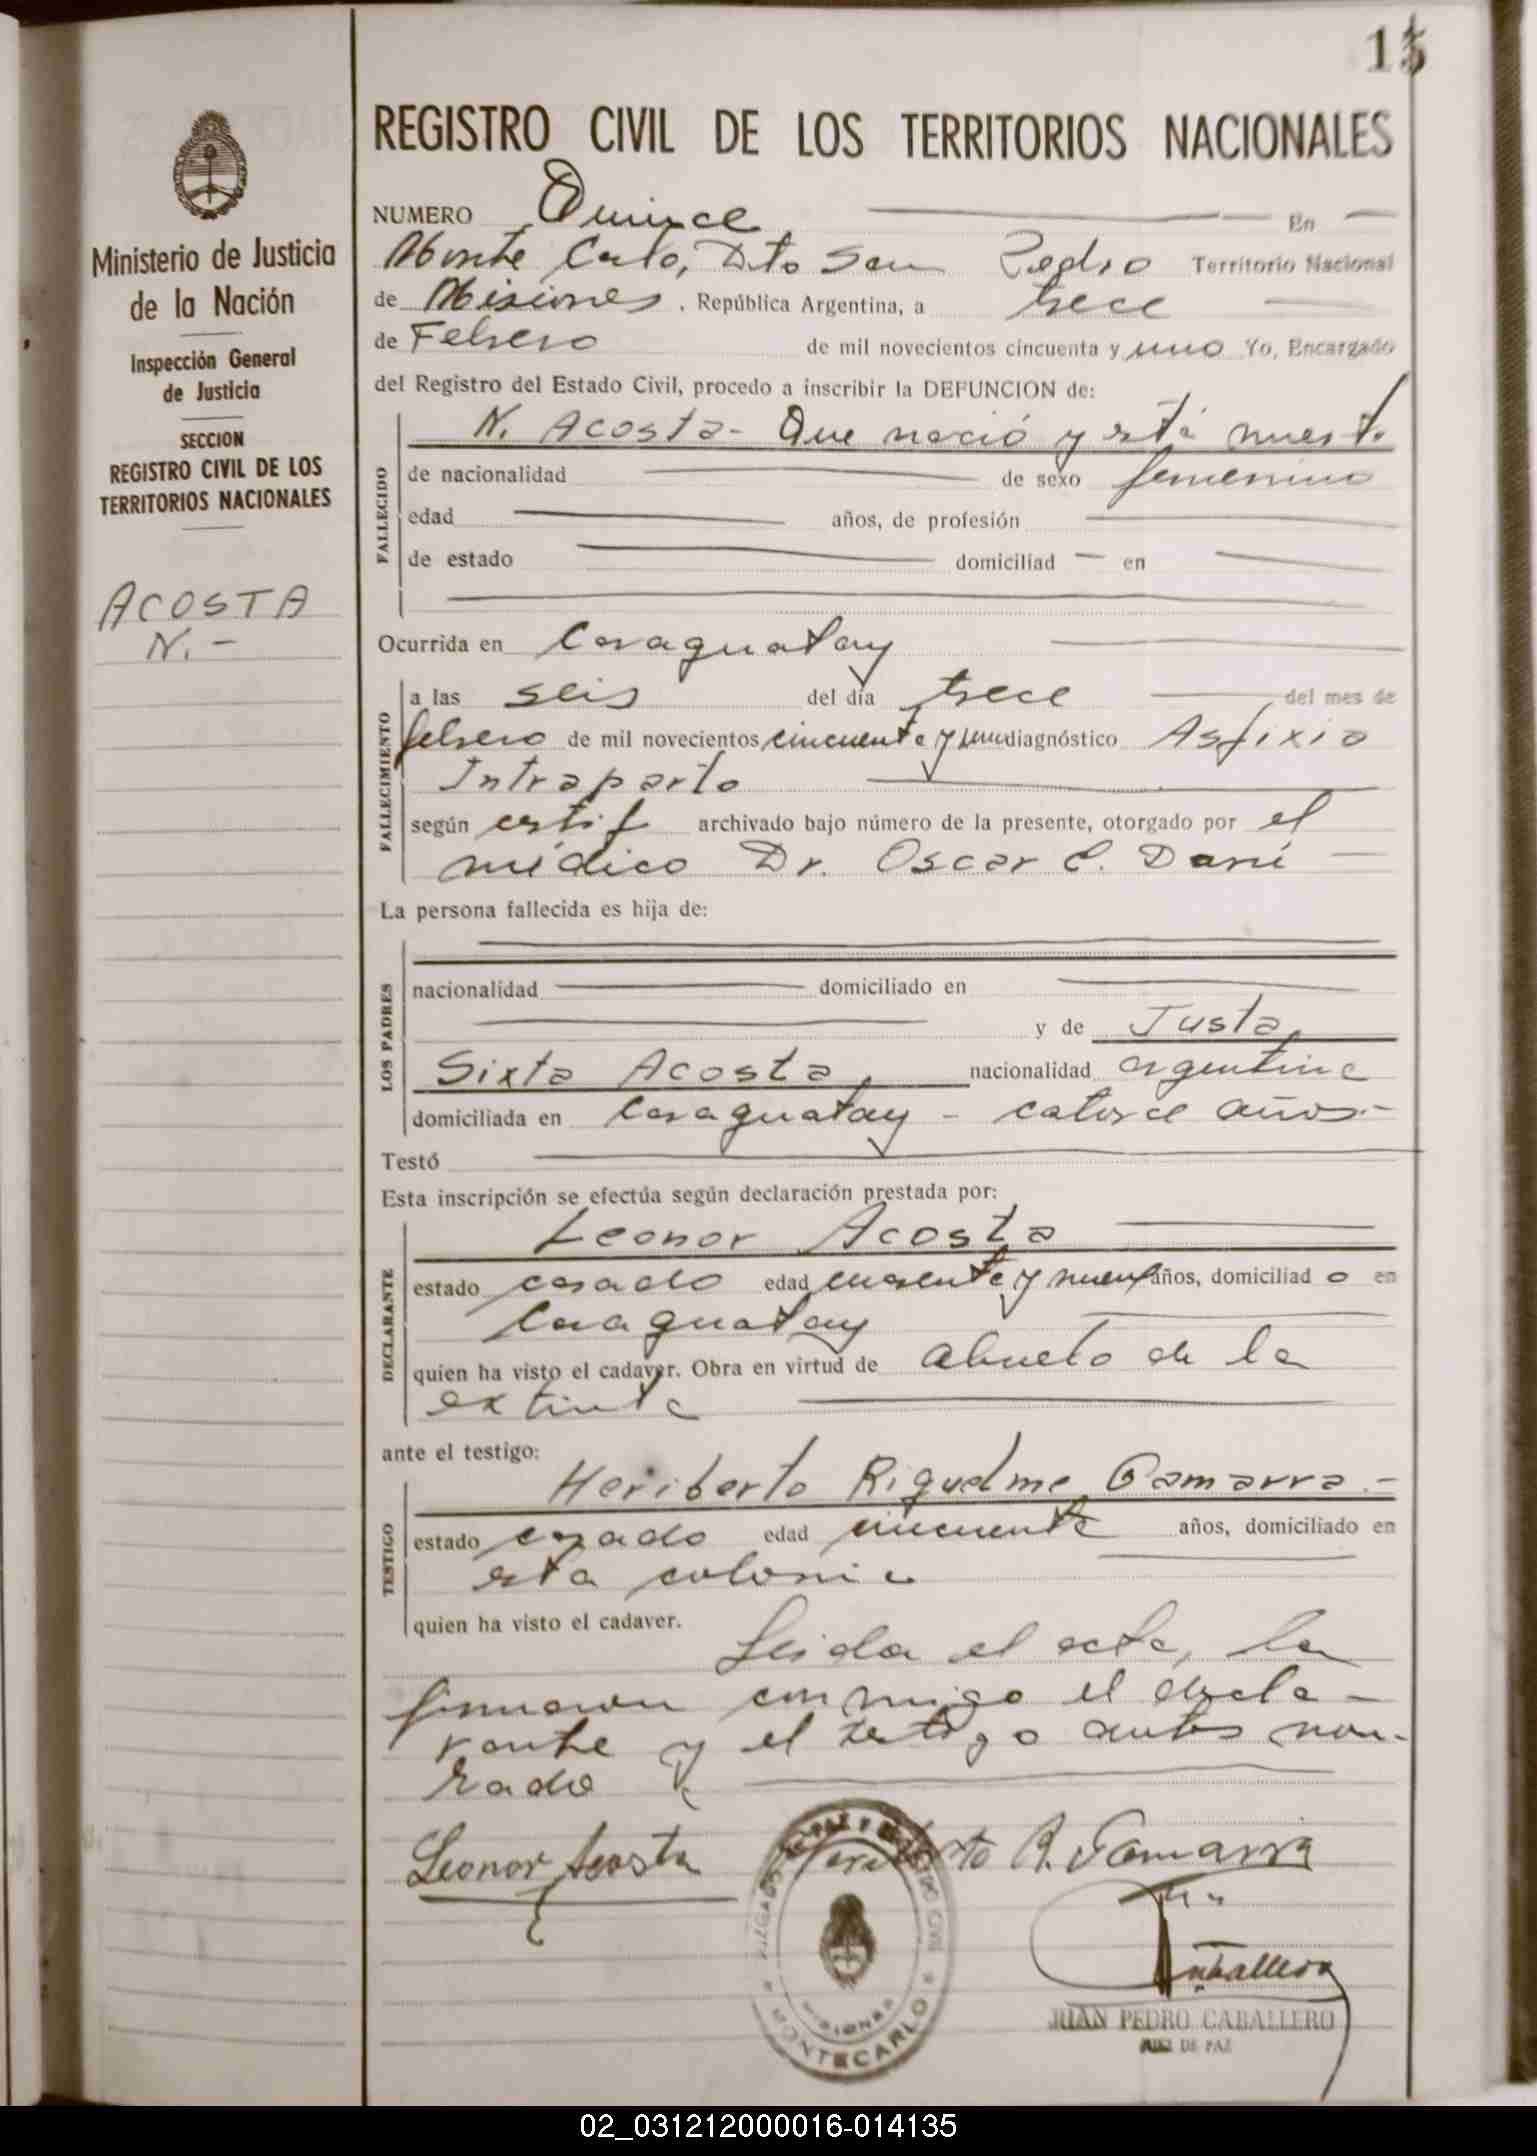 15
REGISTRO CIVIL DE LOS TERRITORIOS NACIONALES
Ministerio de Justicia
de la Nación
Inspección General
de Justicia
SECCION
REGISTRO CIVIL DE LOS
TERRITORIOS NACIONALES
ACOSTA
N.-
NUMERO Quince En
Monte Carlo, Dto San Pedro Territorio Nacional
de Misiones, República Argentina, a trece
de Febrero de mil novecientos cincuenta y uno Yo, Encargado
del Registro del Estado Civil, procedo a inscribir la DEFUNCION de:
FALLECIDO
N. Acosta- Que nació y está muerta
de nacionalidad de sexo femenino
edad años, de profesión
de estado domiciliad en
Ocurrida en Caraguatay
FALLECIMIENTO
a las seis del día trece del mes de
febrero de mil novecientos cincuenta y uno diagnóstico Asfixia
Intraparto
según certif archivado bajo número de la presente, otorgado por el
médico Dr. Oscar C. Dani
La persona fallecida es hija de:
LOS PADRES
nacionalidad domiciliado en
y de Justa
Sixta Acosta, nacionalidad argentina
domiciliada en Caraguatay - catorce años.-
Testó
Esta inscripción se efectúa según declaración prestada por:
DECLARANTE
Leonor Acosta
estado casado edad cuarenta y nueve años, domiciliad o en
Caraguatay
quien ha visto el cadaver. Obra en virtud de abuelo de la
extinta
ante el testigo:
TESTIGO
Heriberto Riquelme Gamarra.-
estado casado edad cincuenta años, domiciliado en
esta colonia
quien ha visto el cadaver.
Leida el acta, la
firmaron conmigo el decla-
rante y el testigo antes nom-
brado
Leonor Acosta
Heriberto R. Gamarra
JUZGADO DE PAZ Y REGISTRO CIVIL
MISIONES
MONTECARLO
Caballero
JUAN PEDRO CABALLERO
JUEZ DE PAZ
02_031212000016-014135